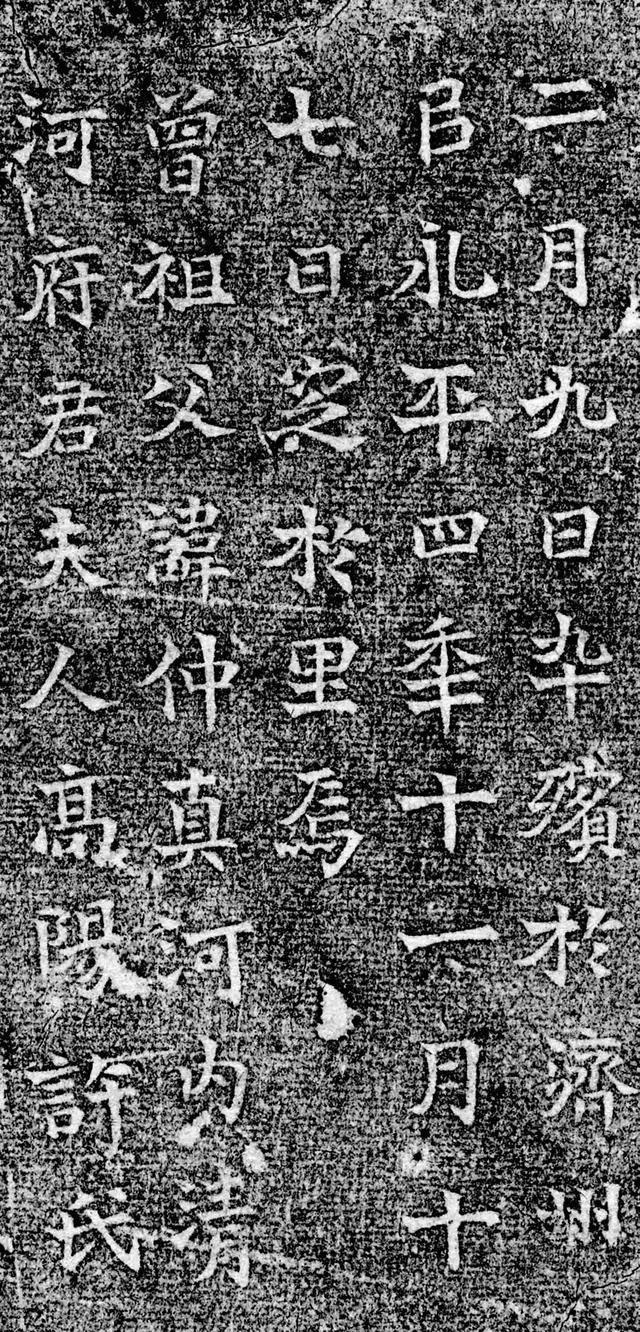 二月九日卆殯於濟州
㠯永平四秊十一月十
七日窆於里焉
曾祖父諱仲真河内清
河府君夫人髙陽許氏